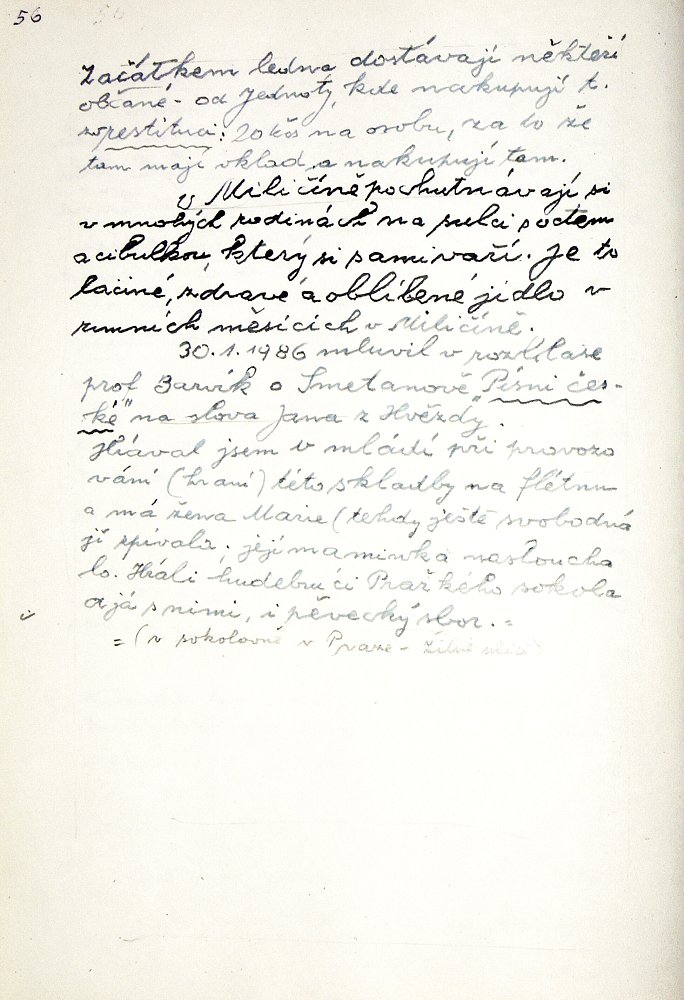 56
Začátkem ledna dostávají někteří
občané - od Jednoty, kde nakupují t.
zv restituci: 20 kčs na osobu, za to že
tam mají vklad a nakupují tam.
V Miličíně pochutnávají si
v mnohých rodinách na sulci s octem
a cibulkou, který si sami vaří. Je to
laciné, zdravé a oblíbené jídlo v
zimních měsících v Miličíně.
30.1.1986 mluvil v rozhlase
prof Barvík o Smetanově "Písni čes-
ké" na slova Jana z Hvězdy.
Hrával jsem v mládí při provozo
vání (hraní) této skladby na flétnu
a má žena Marie (tehdy ještě svobodná
ji zpívala; její maminka nasloucha
la. Hráli hudebníci Pražkého sokola
a já s nimi, i pěvecký sbor. =
= (v sokolovně v Praze - Žitné ulici)